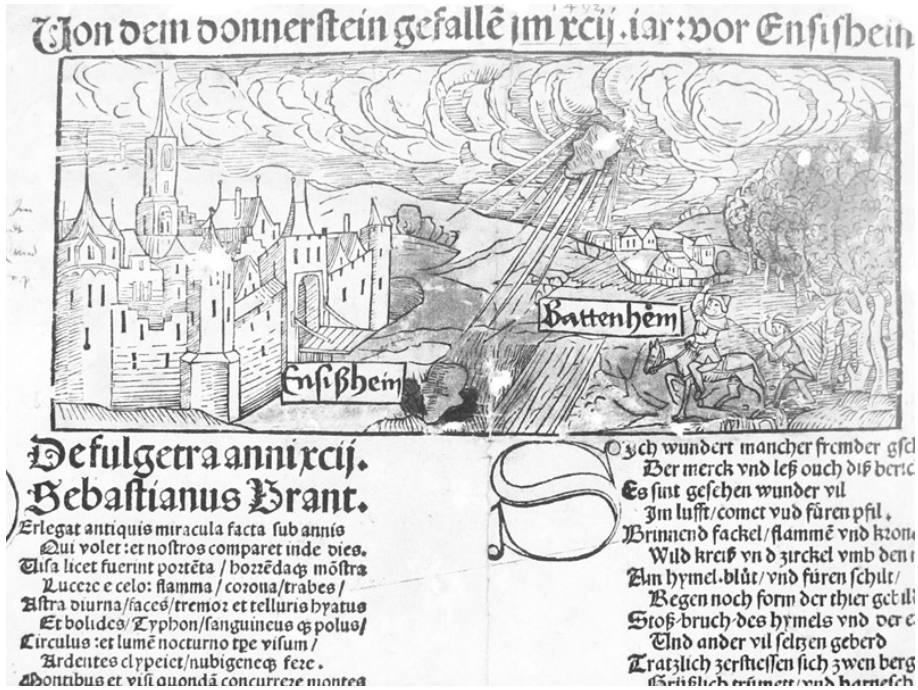 1492
Von dem donnerstein gefallē jm xcij.iar: vor Ensishein
Battenhēm
Ensißhein
De fulgetra anni xcij.
Sebastianus Brant.
Erlegat antiquis miracula facta sub annis
Qui volet: et nostros comparet inde dies.
Uisa licet fuerint portēta / horrēdaqȝ mōstra
Lucere e celo: flamma / corona / trabes /
Astra diurna / faces / tremor et telluris hyatus
Et bolides / Typhon / sanguineus qȝ polus /
Circulus: et lumē nocturno tpe visum /
Ardentes clypei et / nubigeneqȝ fere.
Montibus et visi quondā concurrere montes
Sich wundert mancher fremder gsch
Der merck vnd leß ouch diß beric
Es sint gesehen wunder vil
Jm lufft / comet vnd füren pfil.
Brinnend fackel / flammē vnd kron
Wild kreiß vnd zirckel vmb den
Am hymel. blůt / vnd füren schilt /
Regen noch form der thier gebild
Stoß / bruch / des hymels vnd der e
Vnd ander vil seltzen geberd
Tratzlich zerstiessen sich zwen berg
Grüßlich trümett / vnd harnesch